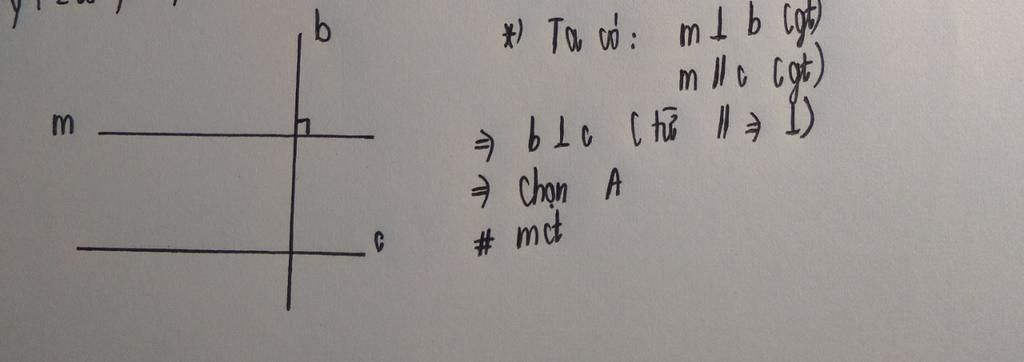 b
m
c
*) Ta có: m ⊥ b (gt)
m // c (gt)
⇒ b ⊥ c (từ // ⇒ ⊥)
⇒ Chọn A
# mct